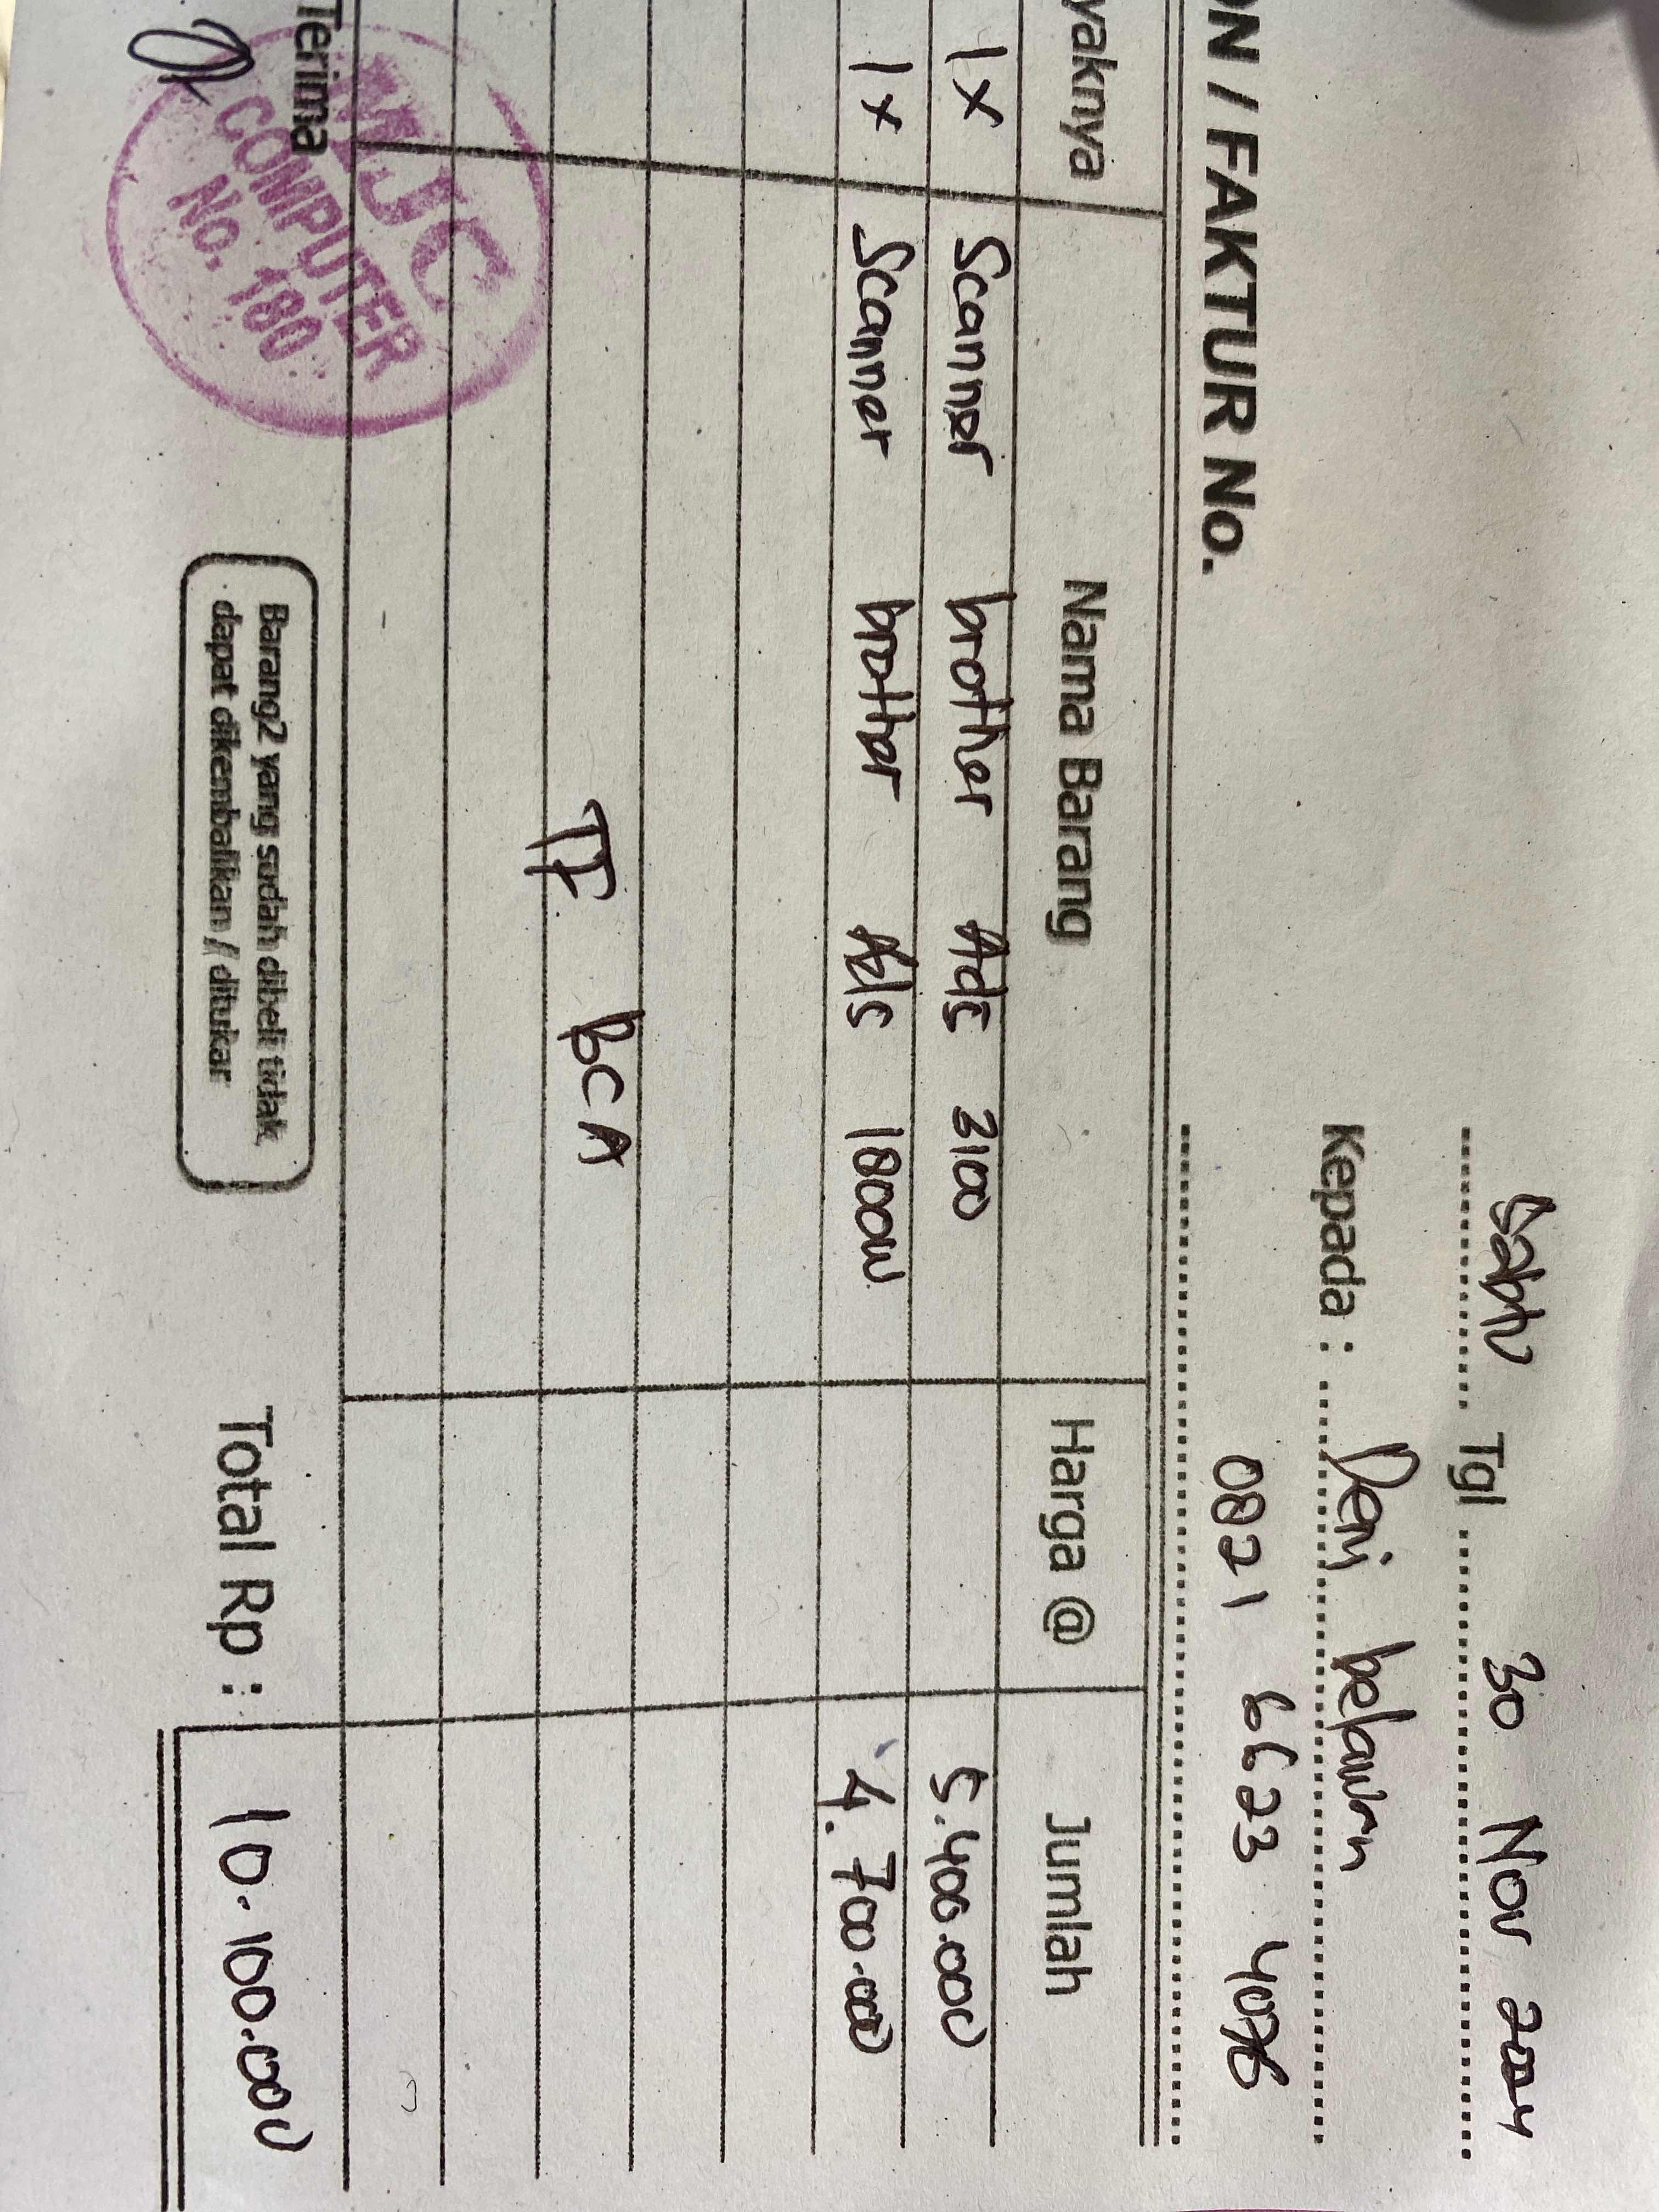 Sabtu Tgl 30 Nov 2024
Kepada : Deni belawan
ON / FAKTUR No. 0821 6623 4076
yaknya Nama Barang Harga @ Jumlah
1x Scanner brother Ads 3100 5.400.000
1x Scanner brother Ads 1800W 4.700.000
TF BCA
Terima
MJC
COMPUTER
No. 180
Barang2 yang sudah dibeli tidak
dapat dikembalikan / ditukar
Total Rp : 10.100.000